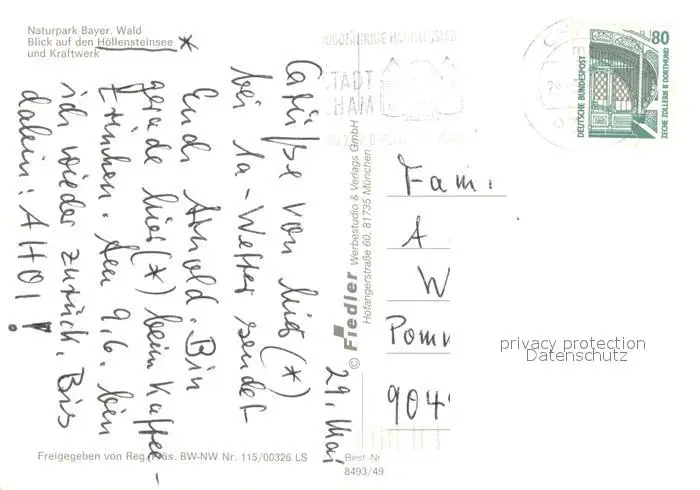 Naturpark Bayer. Wald
Blick auf den Höllensteinsee *
und Kraftwerk
29. Mai
Grüße von hier (*)
bei 1a-Wetter sendet
Euch Arnold. Bin
gerade hier (*) beim Kaffee-
trinken. Am 9.6. bin
ich wieder zurück. Bis
dahin: AHOI!
Freigegeben von Reg. Präs. BW-NW Nr. 115/00326 LS
© Fiedler Werbestudio & Verlags GmbH
Hofangerstraße 60, 81735 München
Best.-Nr
8493/49
STADT
CHAM
80
DEUTSCHE BUNDESPOST
ZECHE ZOLLERN II DORTMUND
Fam.
A
W
Pomm
904
privacy protection
Datenschutz